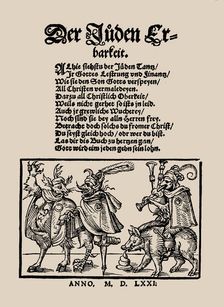 Der Jůden Er-
barkeit.
Alhie siehstu der Jůden Tantz/
Jr Gottes Lestrung vnd Finantz/
Wie sie den Son Gottes verspeyen/
All Christen vermaledeyen.
Darzu all Christlich Oberkeit/
Weils nicht gerhet so ists jn leid.
Auch je grewliche Wucherey/
Noch sind sie bey alln Herren frey.
Betracht doch solchs du fromer Christ/
Du seyst gleich hoch/ oder wer du bist.
Las dir dis Buch zu hertzen gan/
Gott wird eim jeden gebn sein lohn.
ANNO, M. D. LXXI.